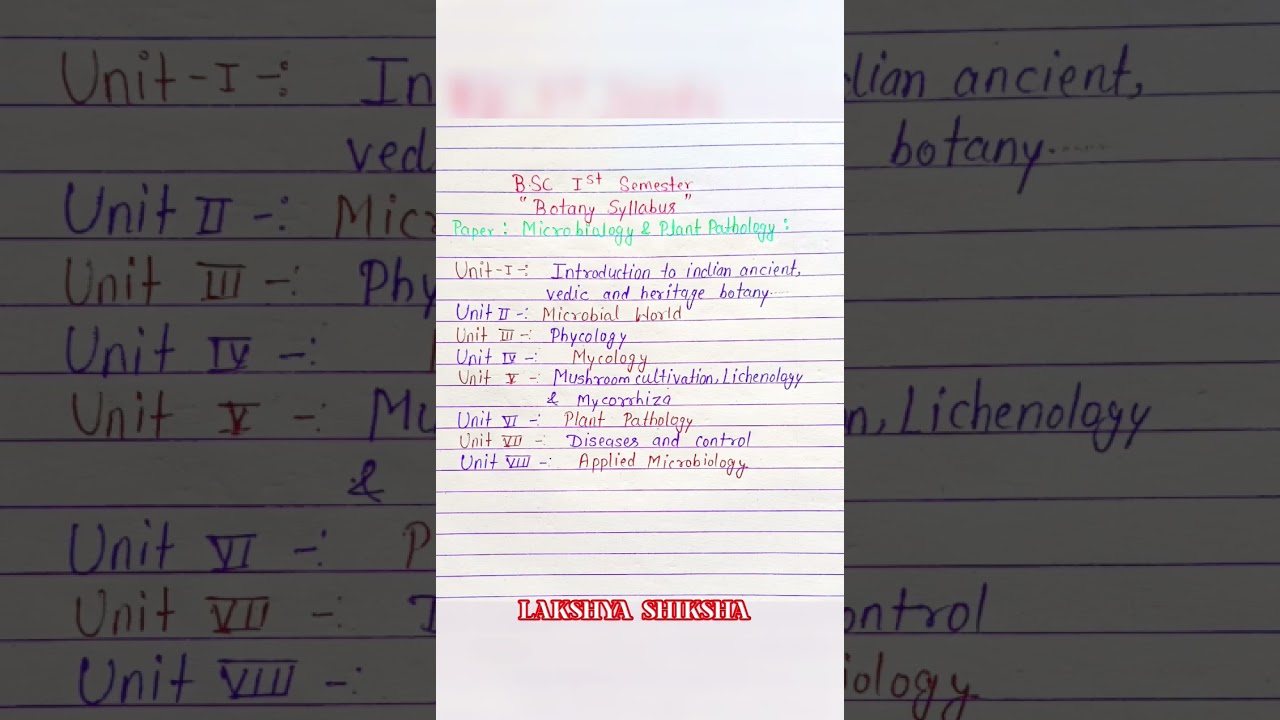 B.SC Ist Semester
"Botany Syllabus"
Paper: Microbialogy & Plant Pathology:
Unit-I-: Introduction to indian ancient,
vedic and heritage botany.....
Unit II-: Microbial World
Unit III-: Phycology
Unit IV-: Mycology
Unit V-: Mushroom cultivation, Lichenology
& Mycorrhiza
Unit VI-: Plant Pathology
Unit VII-: Diseases and control
Unit VIII-: Applied Microbiology
LAKSHYA SHIKSHA